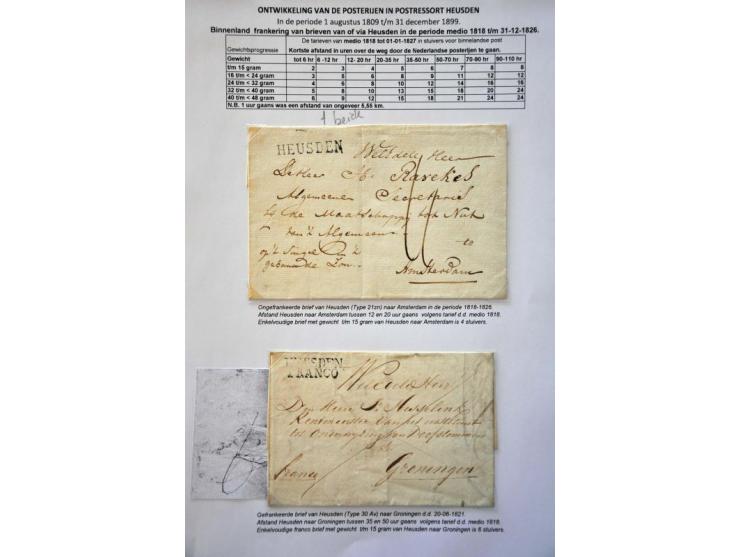 ONTWIKKELING VAN DE POSTERIJEN IN POSTRESSORT HEUSDEN
In de periode 1 augustus 1809 t/m 31 december 1899.
Binnenland frankering van brieven van of via Heusden in de periode medio 1818 t/m 31-12-1826.
De tarieven van medio 1818 tot 01-01-1827 in stuivers voor binnelandse post
Gewichtsprogressie Kortste afstand in uren over de weg door de Nederlandse posterijen te gaan.
Gewicht tot 6 hr 6 -12 hr 12- 20 hr 20-35 hr 35-50 hr 50-70 hr 70-90 hr 90-110 hr
t/m 15 gram 2 3 4 5 6 7 8 8
16 t/m < 24 gram 3 5 6 8 9 11 12 12
24 t/m < 32 gram 4 6 8 10 12 14 16 16
32 t/m < 40 gram 5 8 10 13 15 18 20 24
40 t/m < 48 gram 6 9 12 15 18 21 24 24
N.B. 1 uur gaans was een afstand van ongeveer 5,55 km.
HEUSDEN
Heer
De Heer
Algemeene Secretaris
de Maatschappij tot Nut
van 't Algemeen
te
op 't Singel
Amsterdam
Ongefrankeerde brief van Heusden (Type 21zn) naar Amsterdam in de periode 1818-1826.
Afstand Heusden naar Amsterdam tussen 12 en 20 uur gaans volgens tarief d.d. medio 1818.
Enkelvoudige brief met gewicht t/m 15 gram van Heusden naar Amsterdam is 4 stuivers.
HEUSDEN
FRANCO
Den Heer
franco Groningen
Gefrankeerde brief van Heusden (Type 30 Av) naar Groningen d.d. 20-06-1821.
Afstand Heusden naar Groningen tussen 35 en 50 uur gaans volgens tarief d.d. medio 1818.
Enkelvoudige franco brief met gewicht t/m 15 gram van Heusden naar Groningen is 6 stuivers.